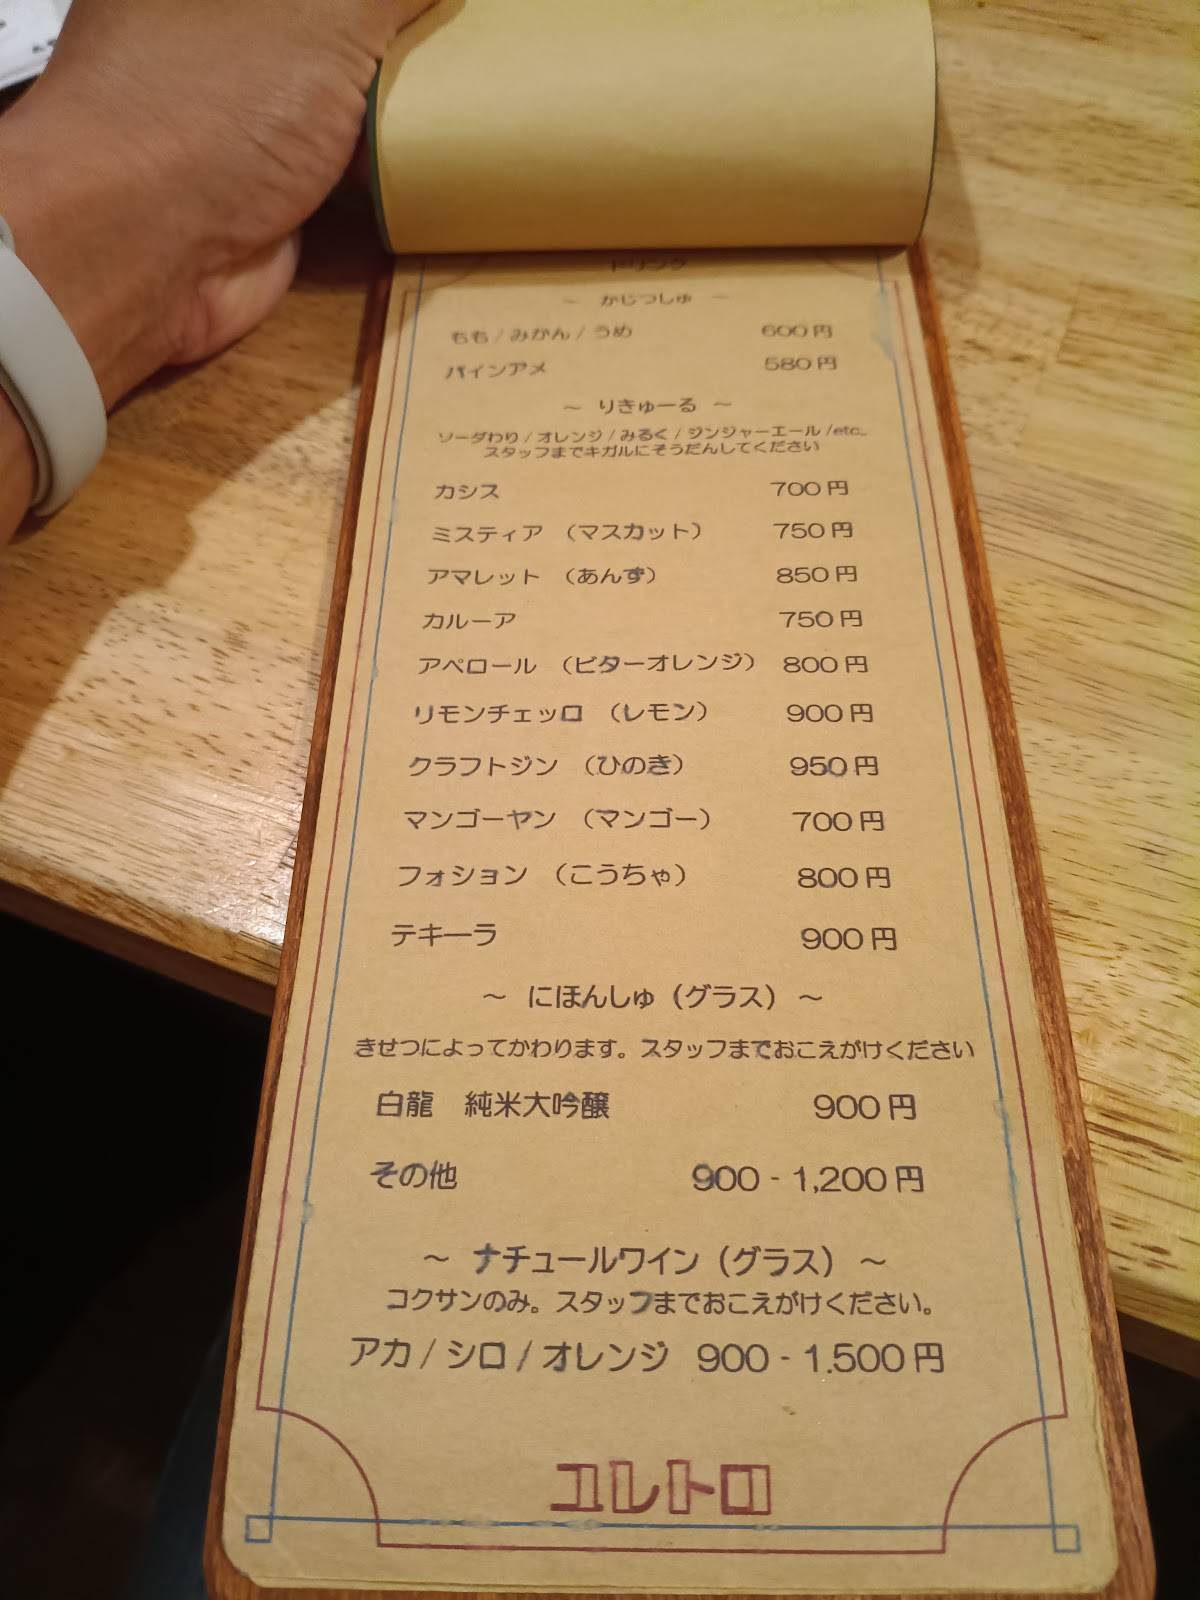 ドリンク
～ かじつしゅ ～
もも / みかん / うめ 600円
パインアメ 580円
～ りきゅーる ～
ソーダわり / オレンジ / みるく / ジンジャーエール /etc..
スタッフまでキガルにそうだんしてください
カシス 700円
ミスティア （マスカット） 750円
アマレット （あんず） 850円
カルーア 750円
アペロール （ビターオレンジ） 800円
リモンチェッロ （レモン） 900円
クラフトジン （ひのき） 950円
マンゴーヤン （マンゴー） 700円
フォション （こうちゃ） 800円
テキーラ 900円
～ にほんしゅ（グラス） ～
きせつによってかわります。スタッフまでおこえがけください
白龍 純米大吟醸 900円
その他 900 - 1,200円
～ ナチュールワイン（グラス） ～
コクサンのみ。スタッフまでおこえがけください。
アカ / シロ / オレンジ 900 - 1.500円
ユレトロ